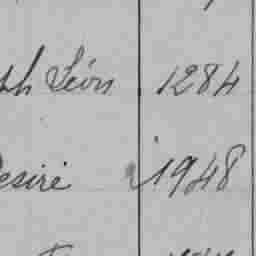 ph Léon 1284
esiré 1948